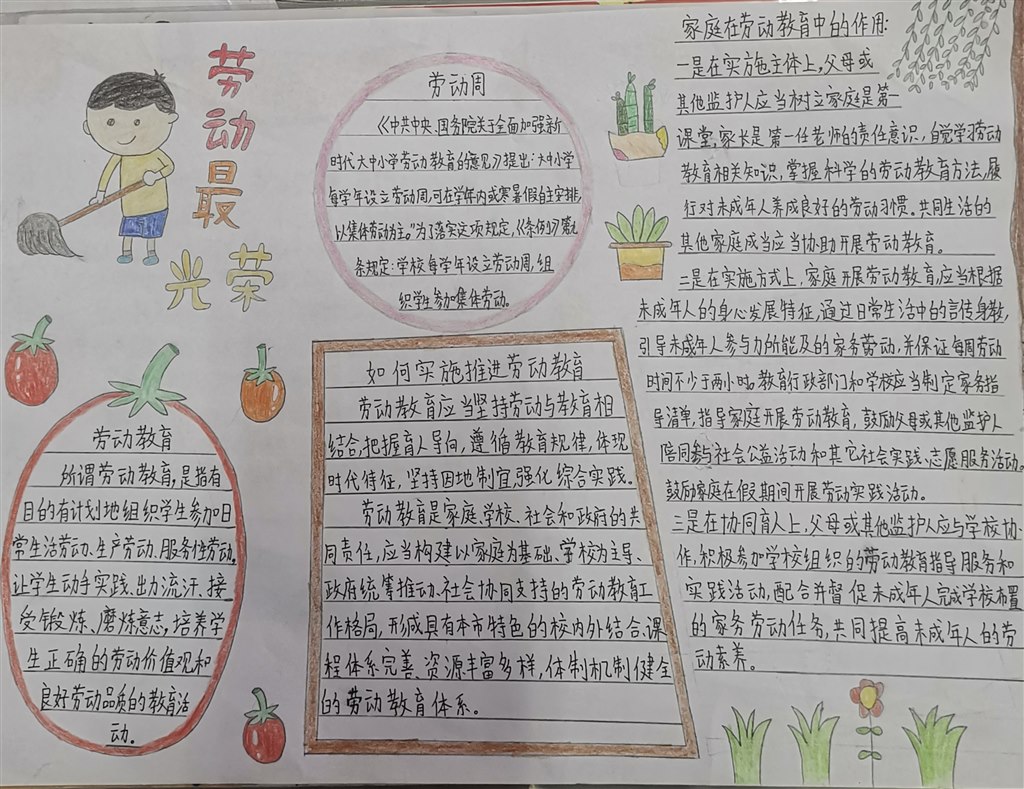 劳动最
光荣
劳动周
《中共中央、国务院关于全面加强新
时代大中小学劳动教育的意见》提出:大中小学
每学年设立劳动周,可在学年内或寒暑假自主安排,
以集体劳动为主。”为了落实这项规定,《条例》第九
条规定:学校每学年设立劳动周,组
织学生参加集体劳动。
劳动教育
所谓劳动教育,是指有
目的有计划地组织学生参加日
常生活劳动、生产劳动、服务性劳动,
让学生动手实践、出力流汗、接
受锻炼、磨炼意志,培养学
生正确的劳动价值观和
良好劳动品质的教育活
动。
如何实施推进劳动教育
劳动教育应当坚持劳动与教育相
结合,把握育人导向,遵循教育规律,体现
时代特征,坚持因地制宜,强化综合实践。
劳动教育是家庭、学校、社会和政府的共
同责任,应当构建以家庭为基础、学校为主导、
政府统筹推动、社会协同支持的劳动教育工
作格局,形成具有本市特色的校内外结合、课
程体系完善、资源丰富多样,体制机制健全
的劳动教育体系。
家庭在劳动教育中的作用:
一是在实施主体上,父母或
其他监护人应当树立家庭是第一
课堂,家长是第一任老师的责任意识,自觉学习劳动
教育相关知识,掌握科学的劳动教育方法,履
行对未成年人养成良好的劳动习惯。共同生活的
其他家庭成当应当协助开展劳动教育。
二是在实施方式上,家庭开展劳动教育应当根据
未成年人的身心发展特征,通过日常生活中的言传身教,
引导未成年人参与力所能及的家务劳动,并保证每周劳动
时间不少于两小时。教育行政部门和学校应当制定家务指
导清单,指导家庭开展劳动教育,鼓励父母或其他监护人
陪同参与社会公益活动和其它社会实践、志愿服务活动。
鼓励家庭在假期间开展劳动实践活动。
三是在协同育人上,父母或其他监护人应与学校协
作,积极参加学校组织的劳动教育指导服务和
实践活动,配合并督促未成年人完成学校布置
的家务劳动任务,共同提高未成年人的劳
动素养。